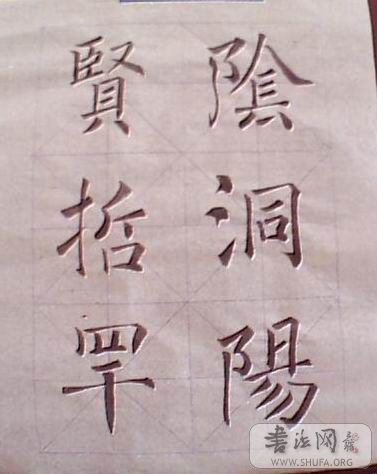 陰洞陽
賢哲罕
書法网
WWW.SHUFA.ORG